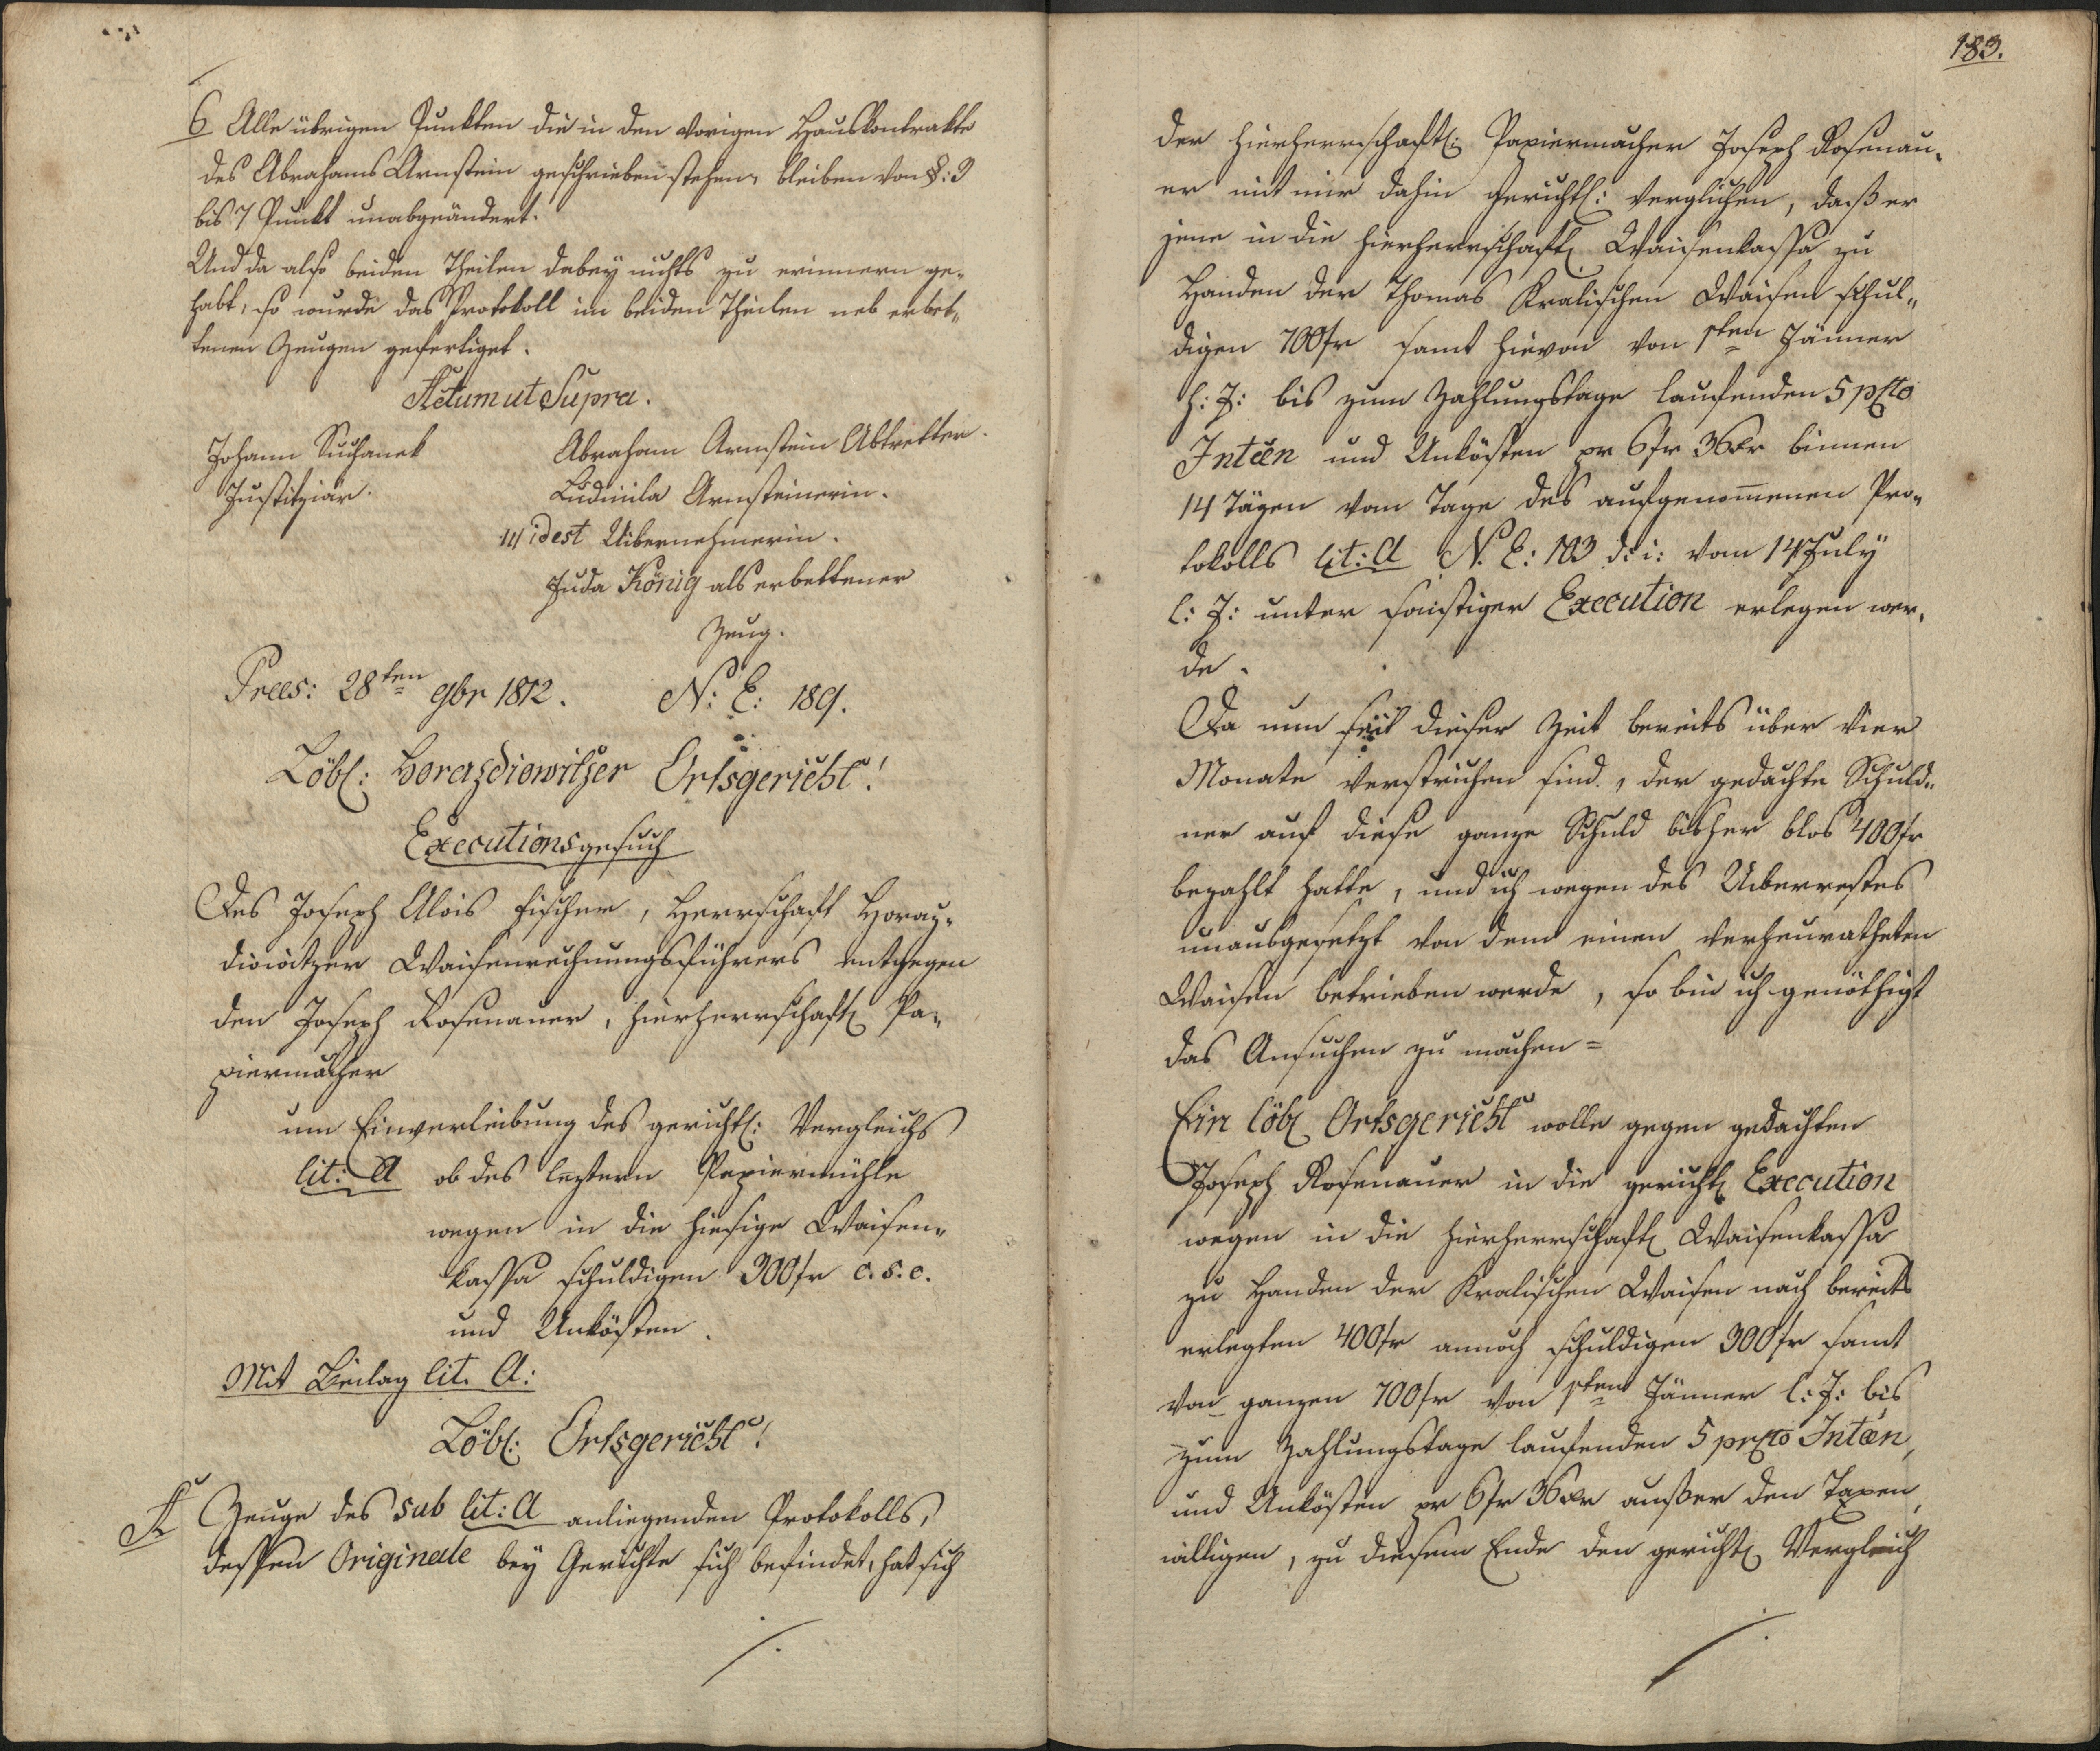 6 Alle übrigen Punkten die in den vorigen Hauskontrakte
des Abrahams Arnstein geschrieben stehen, bleiben von §: 3
bis 7 Punkt unabgeändert.
Und da also beiden Theilen dabey nichts zu erinnern ge-
habt, so wurde das Protokoll im beiden Theilen neb erbet-
tenen Zeugen gefertiget.
Actum ut Supra.
Johann Suchanek
Justitziär.
Abraham Arnstein Abtretter.
Ludmila Arnsteinerin.
idest Uibernehmerin.
Juda König als erbettener
Zeug.
Praes: 28ten 9br 1812. N: E: 189.
Löbl: Horazdiowitzer Ortsgericht!
Executionsgesuch
Des Joseph Alois Fischer, Herrschaft Horaz-
diowitzer Waisenrechnungsführers entgegen
den Joseph Rosenauer, hierherrschaftl Pa-
piermacher
um Einverleibung des gerichtl: Vergleichs
lit: A ob des leztern Papiermühle
wegen in die hiesige Waisen-
kassa schuldigen 300 fr c. s. c.
und Unkösten.
Mit Beilag lit. A:
Löbl: Ortsgericht!
Zeuge des sub lit: A anliegenden Protokolls,
dessen Originale bey Gerichte sich befindet, hat sich
183.
der hierherrschaftl: Papiermacher Joseph Rosenau-
er mit mir dahin gerichtl: verglichen, daß er
jene in die hierherrschaftl Waisenkassa zu
Handen der Thomas Kralischen Waisen schul-
digen 700 fr samt hievon von 1ten Jänner
h: J: bis zum Zahlungstage laufenden 5 pcto
Inteen und Unkösten pr 6 fr 36 xr binnen
14 Tägen vom Tage des aufgenommenen Pro-
tokolls lit: A N. E: 103 d: i: vom 14 July
l: J: unter sonstiger Execution erlegen wer-
de.
Da nun seit dieser Zeit bereits über vier
Monate verstrichen sind, der gedachte Schuld-
ner auf diese ganze Schuld bisher blos 400 fr
bezahlt hatte, und ich wegen des Uiberrestes
unausgesetzt von dem einen verheuratheten
Waisen betrieben werde, so bin ich genöthigt
das Ansuchen zu machen =
Ein löbl Ortsgericht wolle gegen gedachten
Joseph Rosenauer in die gerichtl Execution
wegen in die hierherrschaftl Waisenkassa
zu Handen der Kralischen Waisen nach bereits
erlegten 400 fr annoch schuldigen 300 fr samt
von ganzen 700 fr von 1ten Jänner l: J: bis
zum Zahlungstage laufenden 5 prcto Inteen,
und Unkösten pr 6 fr 36 xr außer den Taxen,
willigen, zu diesem Ende den gerichtl Vergleich